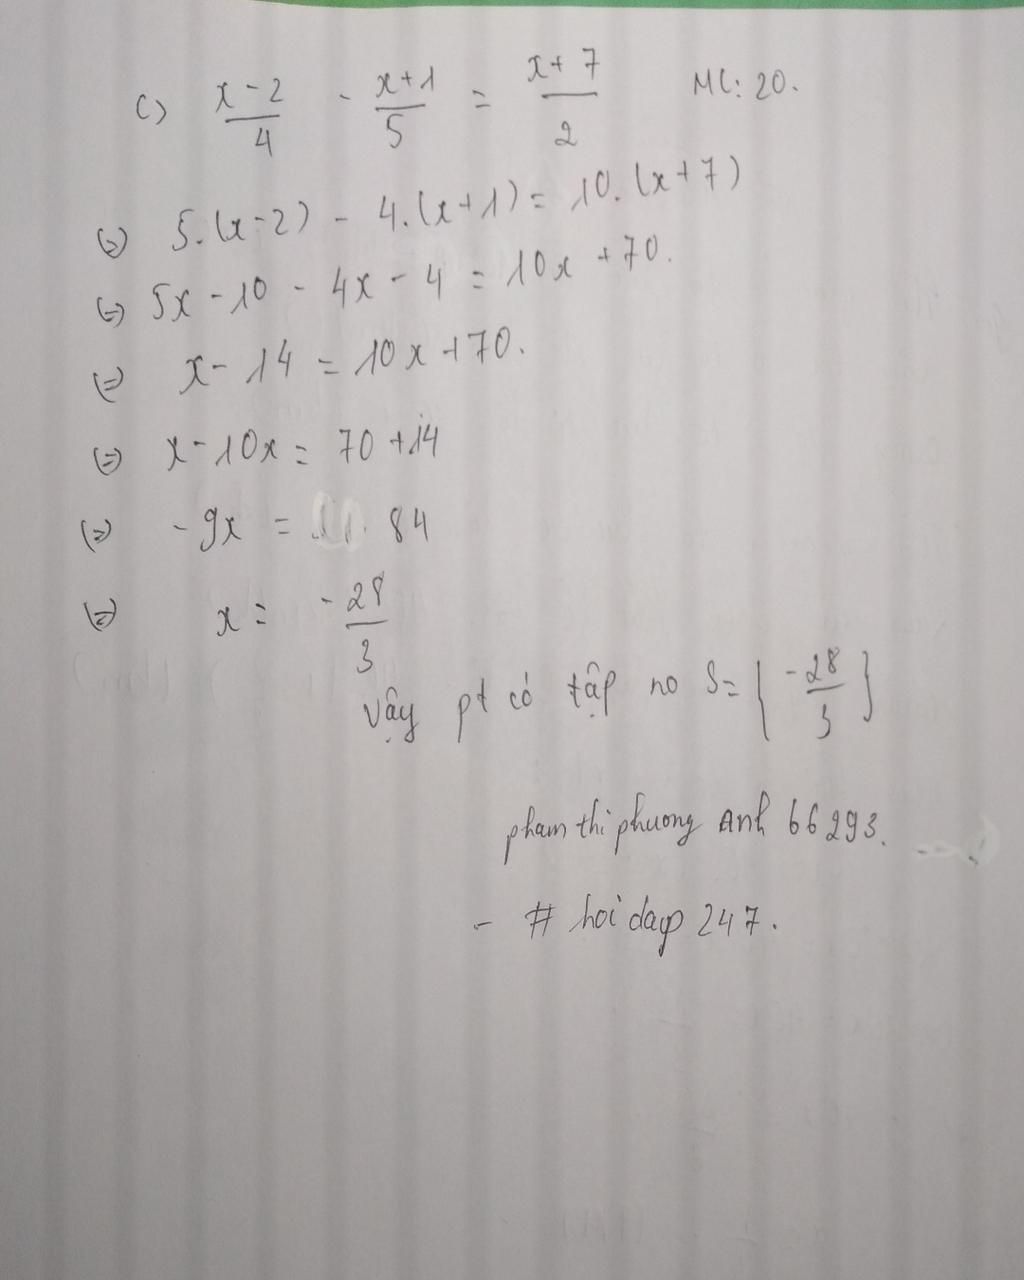 c) (x-2)/4 - (x+1)/5 = (x+7)/2 MC: 20.
(=) 5.(x-2) - 4.(x+1) = 10.(x+7)
(=) 5x - 10 - 4x - 4 = 10x + 70.
(=) x - 14 = 10x + 70.
(=) x - 10x = 70 + 14
(=) -9x = 84
(=) x = -28/3
Vậy pt có tập no S = { -28/3 }
pham thi phuong Anh 66293.
- # hoi dap 247.